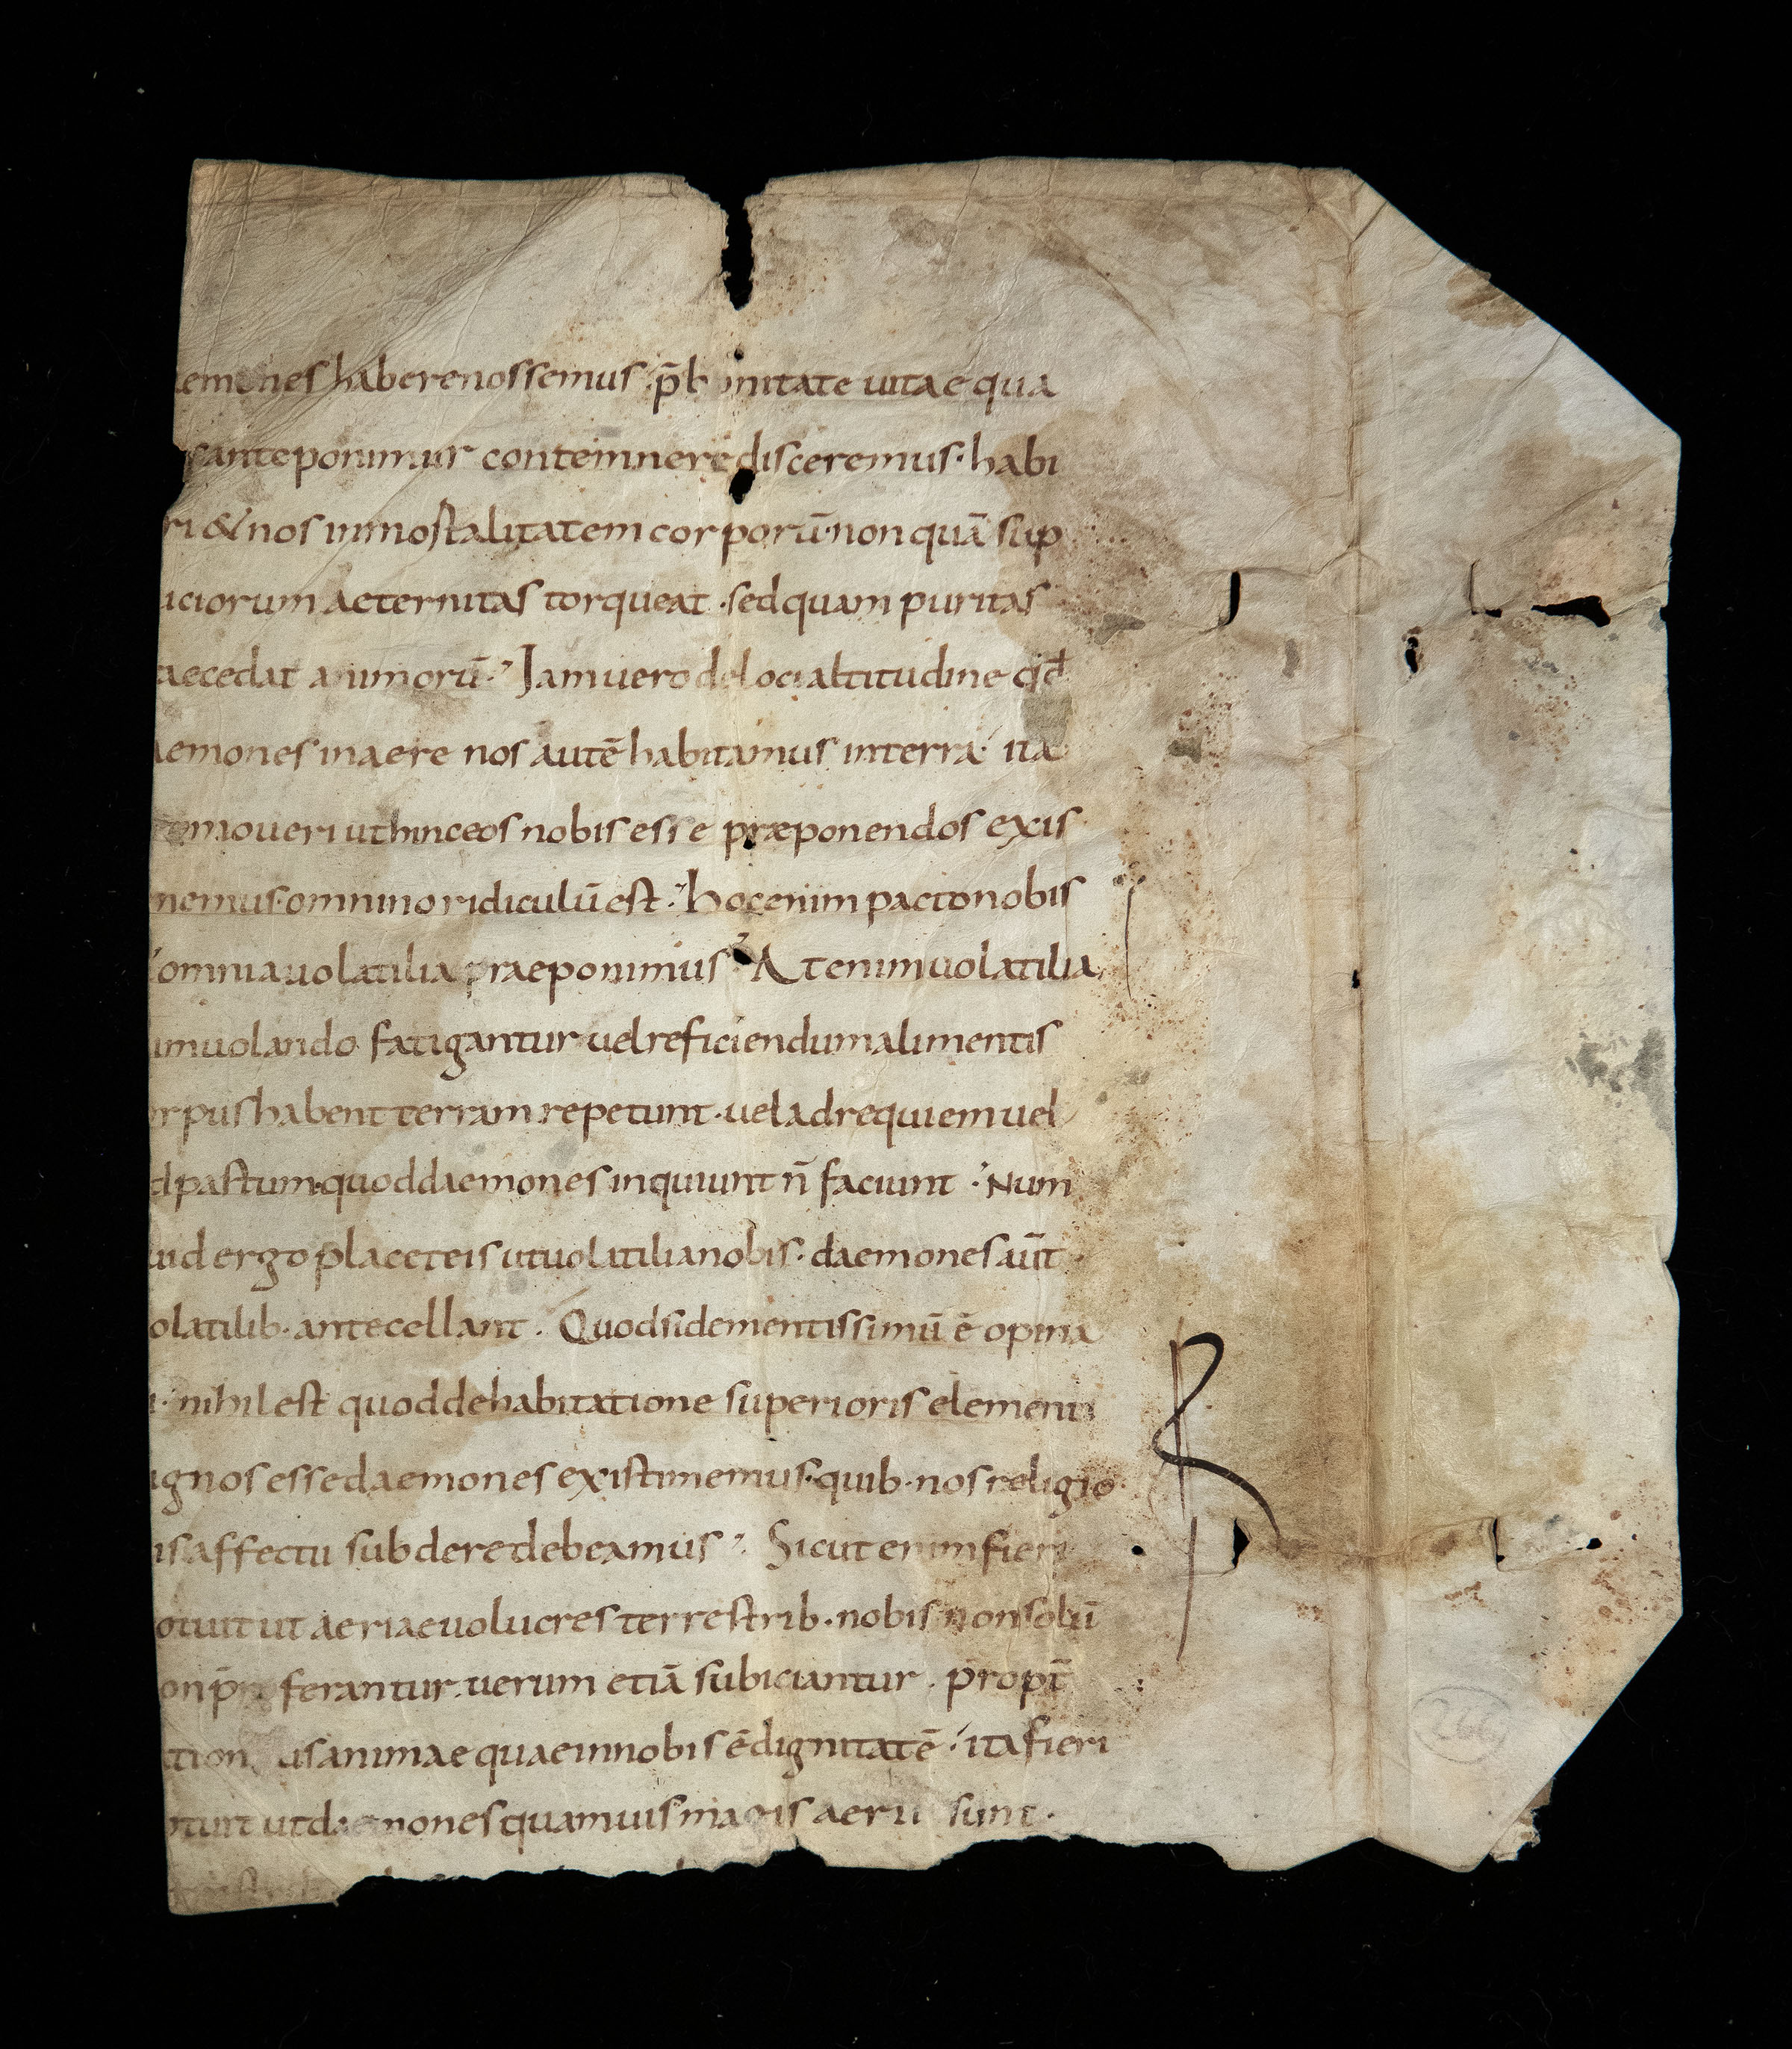 emones habere nossemus · p̄ bonitate uitae qua
s anteponimur contemnere disceremus · habi
ri & nos inmortalitatem corporū · non quā sup
iciorum aeternitas torqueat · sed quam puritas
aecedat animorū · Iam uero de loci altitudine qđ
aemones in aere nos autē habitamus in terra · ita
moueri ut hinc eos nobis esse præponendos exis
memus · omnino ridiculū est · hoc enim pacto nobis
omnia uolatilia praeponimus · At enim uolatilia
um uolando fatigantur uel reficiendum alimentis
rpus habent terram repetunt · uel ad requiem uel
d pastum · quod daemones inquiunt n̄ faciunt · Num
uid ergo placet eis ut uolatilia nobis · daemones aūt
olatilib · antecellant · Quod si dementissimū ē opina
i · nihil est quod de habitatione superioris elementi
ignos esse daemones existimemus · quib · nos religio
is affectu subdere debeamus · Sicut enim fieri
otuit ut aeriae uolucres terrestrib · nobis non solū
on p̄ferantur · uerum etiā subiciantur · propt̄
ation usanimae quae in nobis ē dignitatē · ita fieri
otuit ut daemones quamuis magis aerii sunt ·
266